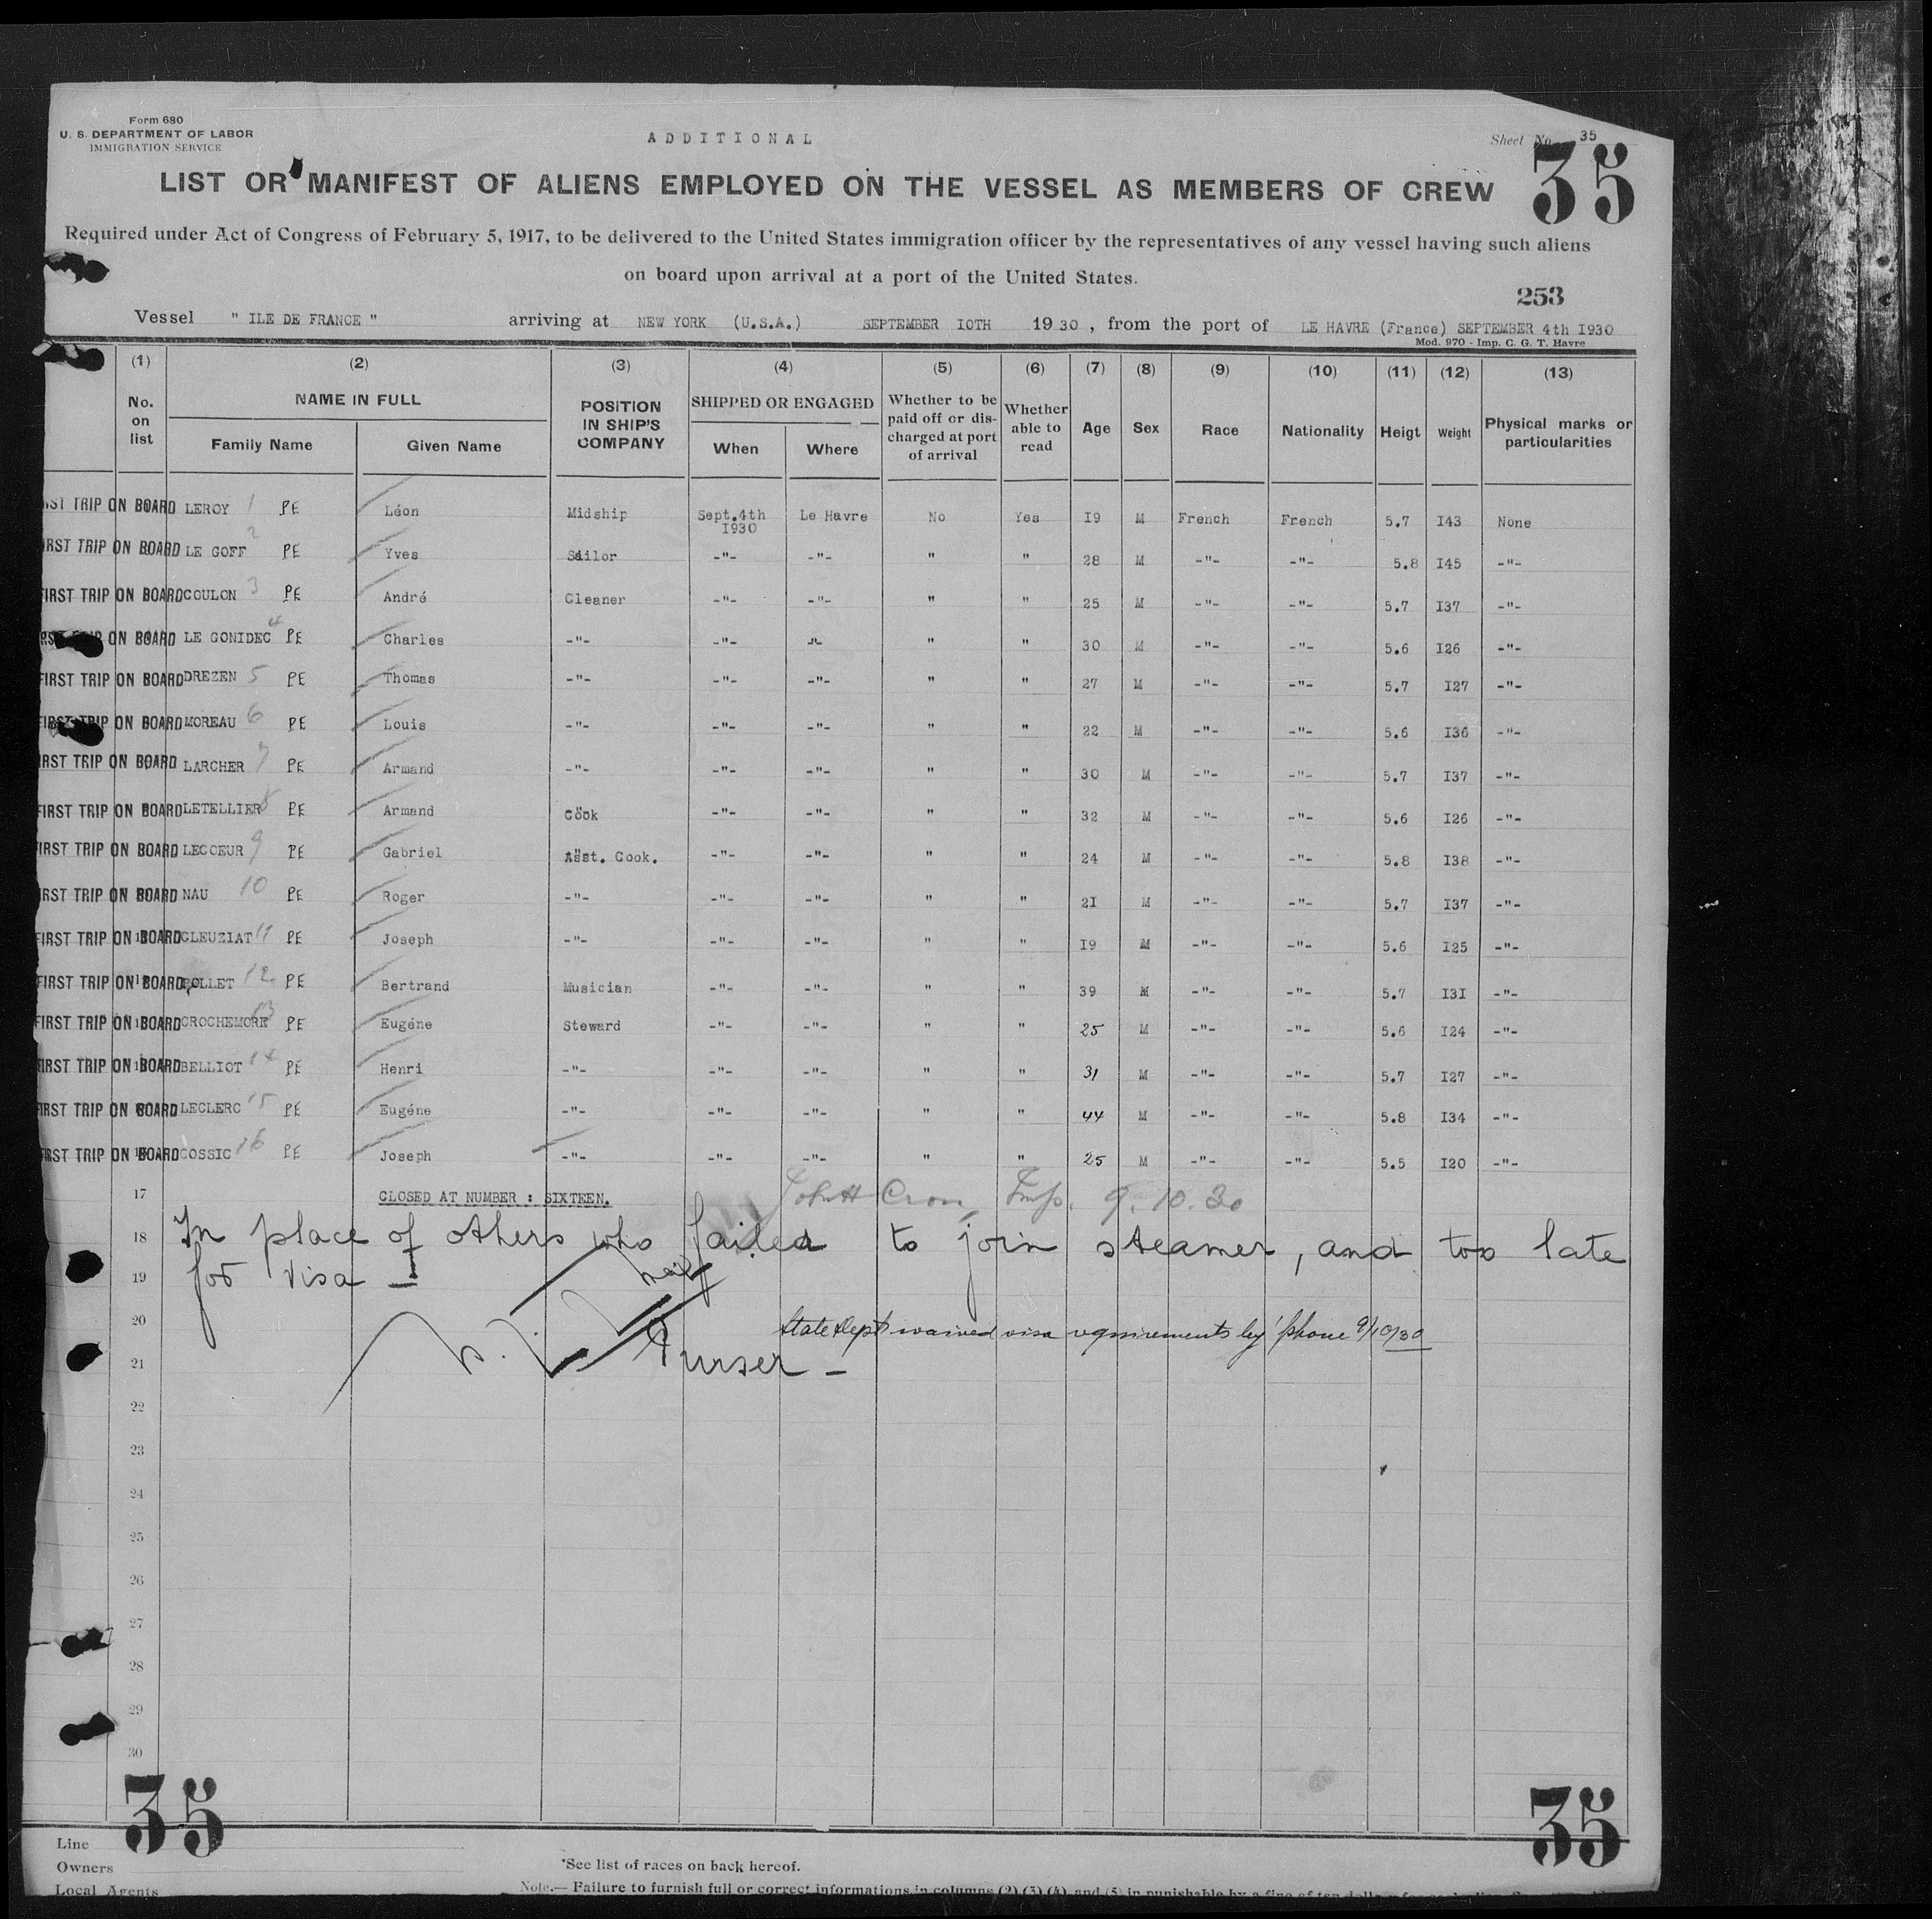 Form 680
U. S. DEPARTMENT OF LABOR
IMMIGRATION SERVICE
ADDITIONAL
Sheet No. 35
35
LIST OR MANIFEST OF ALIENS EMPLOYED ON THE VESSEL AS MEMBERS OF CREW
Required under Act of Congress of February 5, 1917, to be delivered to the United States immigration officer by the representatives of any vessel having such aliens
on board upon arrival at a port of the United States.
253
Vessel " ILE DE FRANCE " arriving at NEW YORK (U.S.A.) SEPTEMBER IOTH 19 30 , from the port of LE HAVRE (France) SEPTEMBER 4th I930
Mod. 970 - Imp. C. G. T. Havre
(1) (2) (3) (4) (5) (6) (7) (8) (9) (10) (11) (12) (13)
No. on list NAME IN FULL Family Name Given Name POSITION IN SHIP'S COMPANY SHIPPED OR ENGAGED When Where Whether to be paid off or discharged at port of arrival Whether able to read Age Sex Race Nationality Heigt Weight Physical marks or particularities
FIRST TRIP ON BOARD LEROY 1 PE Léon Midship Sept.4th I930 Le Havre No Yes I9 M French French 5.7 I43 None
FIRST TRIP ON BOARD LE GOFF 2 PE Yves Sailor -"- -"- " " 28 M -"- -"- 5.8 I45 -"-
FIRST TRIP ON BOARD COULON 3 PE André Cleaner -"- -"- " " 25 M -"- -"- 5.7 I37 -"-
FIRST TRIP ON BOARD LE GONIDEC 4 PE Charles -"- -"- -"- " " 30 M -"- -"- 5.6 I26 -"-
FIRST TRIP ON BOARD DREZEN 5 PE Thomas -"- -"- -"- " " 27 M -"- -"- 5.7 I27 -"-
FIRST TRIP ON BOARD MOREAU 6 PE Louis -"- -"- -"- " " 22 M -"- -"- 5.6 I36 -"-
FIRST TRIP ON BOARD LARCHER 7 PE Armand -"- -"- -"- " " 30 M -"- -"- 5.7 I37 -"-
FIRST TRIP ON BOARD LETELLIER 8 PE Armand Cook -"- -"- " " 32 M -"- -"- 5.6 I26 -"-
FIRST TRIP ON BOARD LECOEUR 9 PE Gabriel Asst. Cook. -"- -"- " " 24 M -"- -"- 5.8 I38 -"-
FIRST TRIP ON BOARD NAU 10 PE Roger -"- -"- -"- " " 2I M -"- -"- 5.7 I37 -"-
FIRST TRIP ON BOARD CLEUZIAT 11 PE Joseph -"- -"- -"- " " I9 M -"- -"- 5.6 I25 -"-
FIRST TRIP ON BOARD 12 PE Bertrand Musician -"- -"- " " 39 M -"- -"- 5.7 I3I -"-
FIRST TRIP ON BOARD CROCHEMORE 13 PE Eugéne Steward -"- -"- " " 25 M -"- -"- 5.6 I24 -"-
FIRST TRIP ON BOARD BELLIOT 14 PE Henri -"- -"- -"- " " 31 M -"- -"- 5.7 I27 -"-
FIRST TRIP ON BOARD LECLERC 15 PE Eugéne -"- -"- -"- " " 44 M -"- -"- 5.8 I34 -"-
FIRST TRIP ON BOARD COSSIC 16 PE Joseph -"- -"- -"- " " 25 M -"- -"- 5.5 I20 -"-
17 CLOSED AT NUMBER : SIXTEEN. John H Cron, Insp. 9.10.30
18 In place of others who failed to join steamer, and too late
19 for visa -
20 State Dept waived visa requirements by 'phone 9/10/30
21 Purser -
22
23
24
25
26
27
28
29
30
35
35
Line
Owners
*See list of races on back hereof.
Local Agents
Note.— Failure to furnish full or correct informations in columns (2) (3) (4) and (5) in punishable by a fine of ten dollars